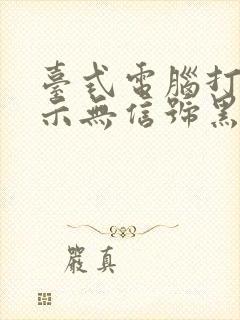 臺式電腦打
示無信號黑
嚴真